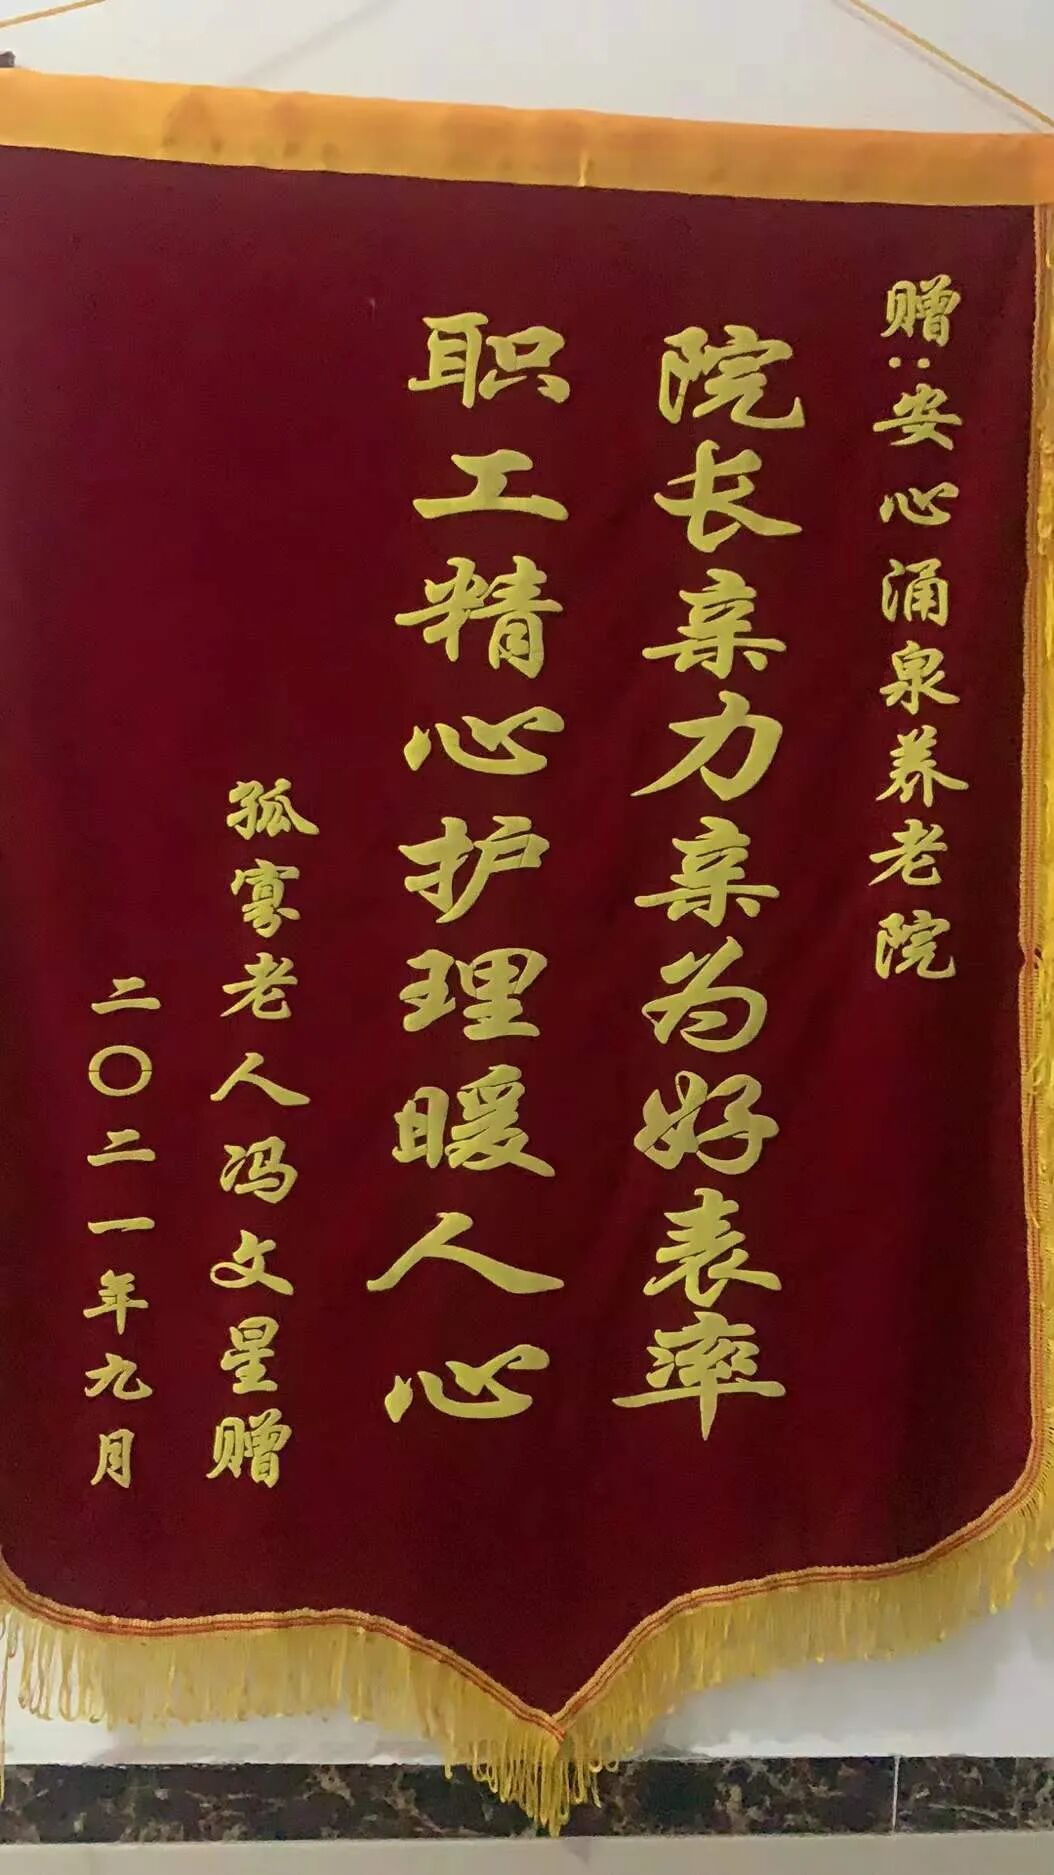 赠:安心涌泉养老院
院长亲力亲为好表率
职工精心护理暖人心
孤寡老人冯文星赠
二〇二一年九月